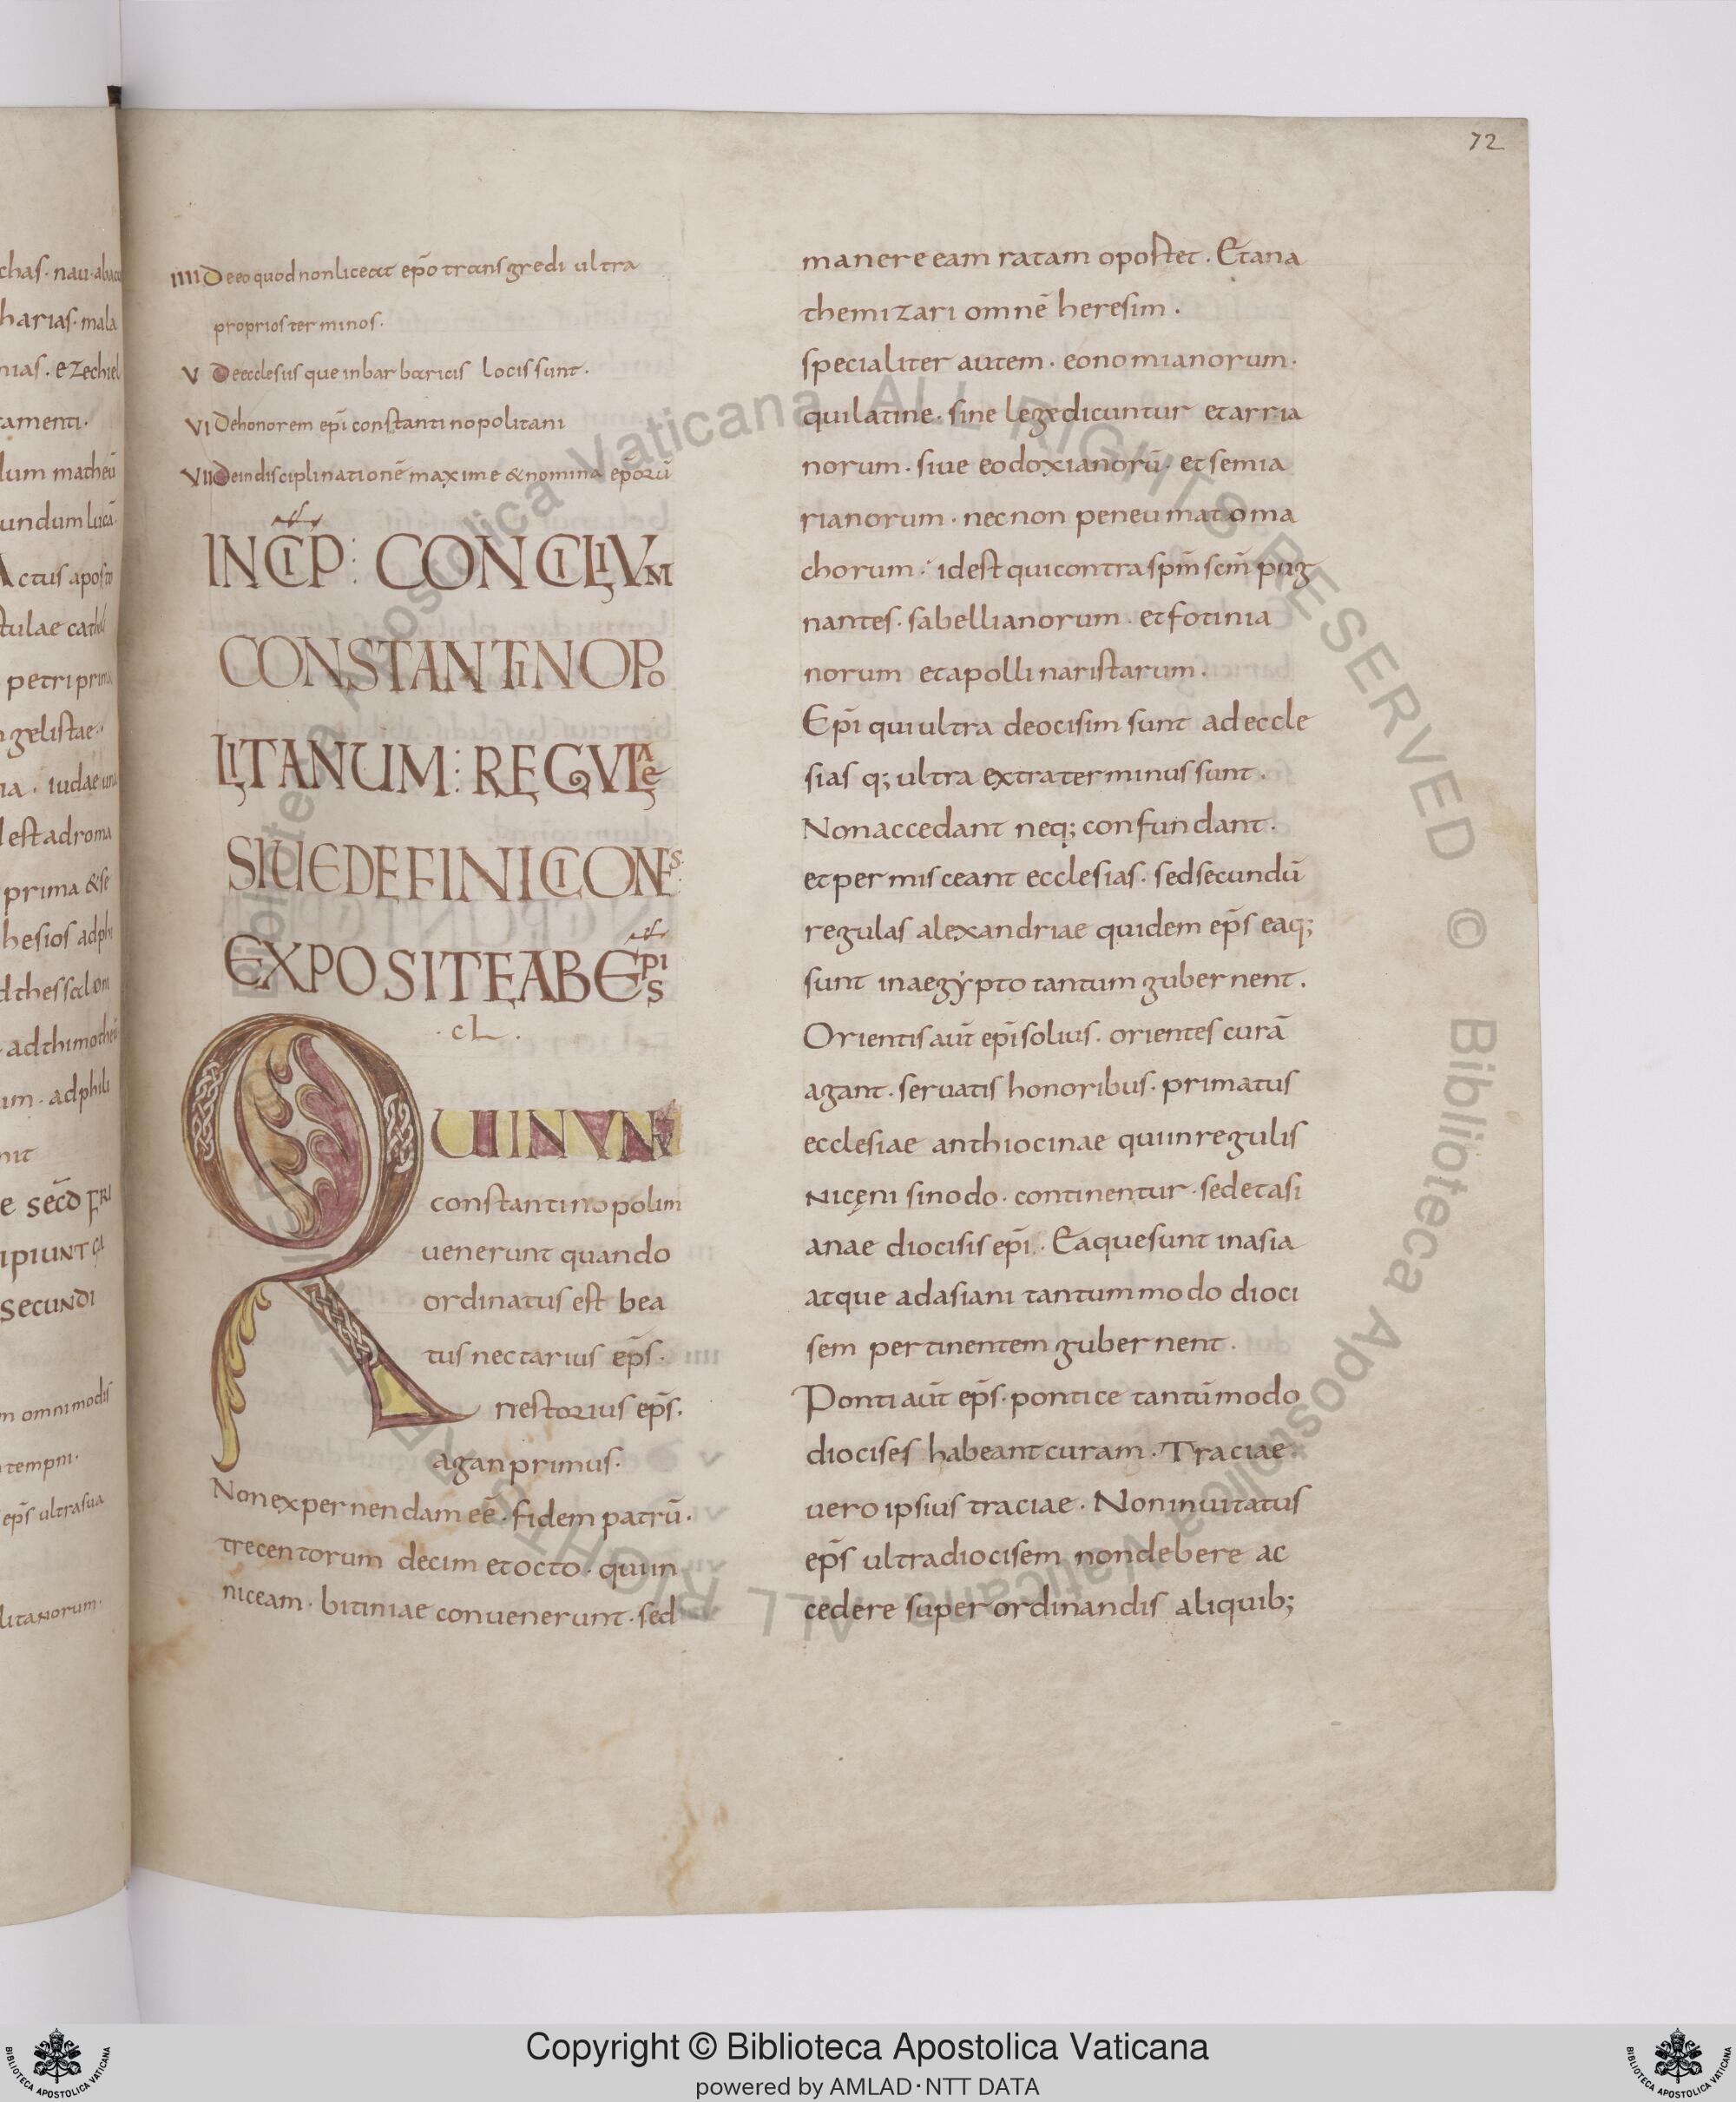 72
chas · nau · abacu
harias · mala
nias · ezechiel
tamenti ·
lum matheū
undum lucā ·
Actus aposto
tulae cathol
petri prima
ngelistae ·
na · iudae una
l est ad roma
prima & se
hesios ad phi
d thessalom
· ad thimotheū
um · ad phili
nit
e secd FRI
ipiunt ca
secundi
m omnimodis
tempni ·
ep̄s ultra sua
litanorum ·
IIII De eo quod non liceat ep̄o transgredi ultra
proprios terminos ·
V De ecclesiis que in barbaricis locis sunt ·
VI De honorem ep̄i constantinopolitani
VII De indisciplinationē maxime & nomina ep̄orū
INCIP : CONCILIUM
CONSTANTINOPO
LITANUM : REGULAE
SIUE DEFINICIONES ·
EXPOSITE AB EPIS
· cL ·
QUI IN UN
constantinopolim
uenerunt quando
ordinatus est bea
tus nectarius ep̄s ·
nestorius ep̄s ·
agan primus ·
Non expernendam eē · fidem patrū ·
trecentorum decim et octo · qui in
niceam · bitiniae conuenerunt · sed
manere eam ratam opostet · Et ana
themizari omnē heresim ·
specialiter autem · eonomianorum ·
qui latine · sine lege dicuntur et arria
norum · siue eodoxianorū · et semia
rianorum · necnon peneumatoma
chorum · id est qui contra sp̄m sc̄m pug
nantes · sabellianorum · et fotinia
norum et apollinaristarum ·
Ep̄i qui ultra deocisim sunt ad eccle
sias q; ultra extra terminus sunt ·
Non accedant neq; confundant ·
et permisceant ecclesias · sed secundū
regulas alexandriae quidem ep̄s eaq;
sunt in aegẏpto tantum gubernent ·
Orientis aūt ep̄i solius · orientes curā
agant · seruatis honoribus · primatus
ecclesiae anthiocinae qui in regulis
nicęni sinodo · continentur · sed et asi
anae diocisis ep̄i · Eaque sunt in asia
atque ad asiani tantummodo dioci
sem pertinentem gubernent ·
Ponti aūt ep̄s · pontice tantūmodo
diocises habeant curam · Traciae
uero ipsius traciae · Non inuitatus
ep̄s ultra diocisem non debere ac
cedere super ordinandis aliquib;
Biblioteca Apostolica Vaticana ALL RIGHTS RESERVED ©
Copyright © Biblioteca Apostolica Vaticana
powered by AMLAD·NTT DATA
BIBLIOTECA APOSTOLICA VATICANA
BIBLIOTECA APOSTOLICA VATICANA